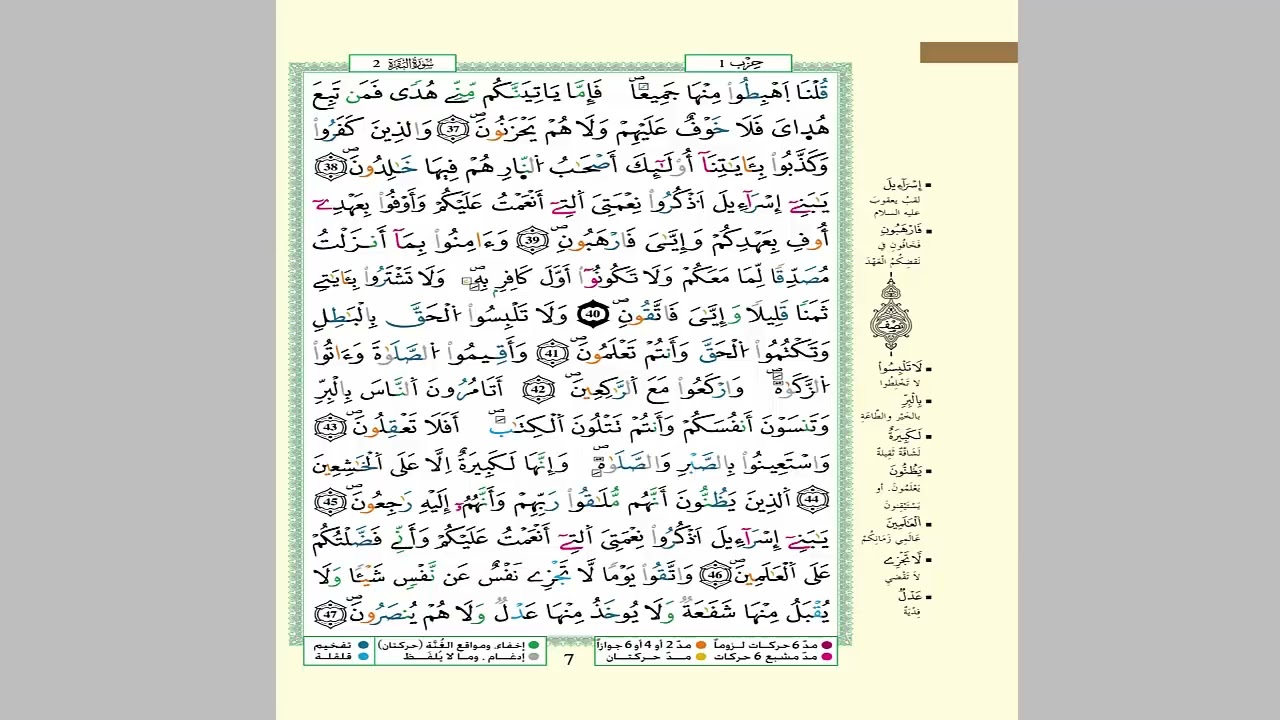 سُورَةُ البَقَرَة 2
حِزْب 1
قُلْنَا اَهْبِطُواْ مِنْهَا جَمِيعاٗۖ فَإِمَّا يَاتِيَنَّكُم مِّنِّے هُدٗى فَمَن تَبِعَ
هُدَايَ فَلَا خَوْفٌ عَلَيْهِمْ وَلَا هُمْ يَحْزَنُونَۖ 37 وَالذِينَ كَفَرُواْ
وَكَذَّبُواْ بِـَٔايَٰتِنَآ أُوْلَٰٓئِكَ أَصْحَٰبُ اُ۬لنّ۪ارِ هُمْ فِيهَا خَٰلِدُونَۖ 38
يَٰبَنِےٓ إِسْرَآءِيلَ اَذْكُرُواْ نِعْمَتِيَ اَ۬لتِےٓ أَنْعَمْتُ عَلَيْكُمْ وَأَوْفُواْ بِعَهْدِےٓ
أُوفِ بِعَهْدِكُمْ وَإِيَّٰيَ فَارْهَبُونِۖ 39 وَءَامِنُواْ بِمَآ أَنزَلْتُ
مُصَدِّقاٗ لِّمَا مَعَكُمْ وَلَا تَكُونُوٓاْ أَوَّلَ كَافِرِۢ بِهِۦۖ وَلَا تَشْتَرُواْ بِـَٔايَٰتِے
ثَمَناٗ قَلِيلاٗ وَإِيَّٰيَ فَاتَّقُونِۖ 40 وَلَا تَلْبِسُواْ اُ۬لْحَقَّ بِالْبَٰطِلِ
وَتَكْتُمُواْ اُ۬لْحَقَّ وَأَنتُمْ تَعْلَمُونَۖ 41 وَأَقِيمُواْ اُ۬لصَّلَوٰةَ وَءَاتُواْ
اُ۬لزَّكَوٰةَۖ وَارْكَعُواْ مَعَ اَ۬لرَّٰكِعِينَۖ 42 أَتَامُرُونَ اَ۬لنَّاسَ بِالْبِرِّ
وَتَنسَوْنَ أَنفُسَكُمْ وَأَنتُمْ تَتْلُونَ اَ۬لْكِتَٰبَۖ أَفَلَا تَعْقِلُونَۖ 43
وَاسْتَعِينُواْ بِالصَّبْرِ وَالصَّلَوٰةِۖ وَإِنَّهَا لَكَبِيرَةٌ اِلَّا عَلَى اَ۬لْخَٰشِعِينَ
44 اَ۬لذِينَ يَظُنُّونَ أَنَّهُم مُّلَٰقُواْ رَبِّهِمْ وَأَنَّهُمُۥٓ إِلَيْهِ رَٰجِعُونَۖ 45
يَٰبَنِےٓ إِسْرَآءِيلَ اَذْكُرُواْ نِعْمَتِيَ اَ۬لتِےٓ أَنْعَمْتُ عَلَيْكُمْ وَأَنِّے فَضَّلْتُكُمْ
عَلَى اَ۬لْعَٰلَمِينَۖ 46 وَاتَّقُواْ يَوْماٗ لَّا تَجْزِے نَفْسٌ عَن نَّفْسٖ شَيْـٔاٗ وَلَا
يُقْبَلُ مِنْهَا شَفَٰعَةٞ وَلَا يُوخَذُ مِنْهَا عَدْلٞ وَلَا هُمْ يُنصَرُونَۖ 47
إِسْرَآءِيلَ
لقبُ يعقوبَ
عليه السلام
فَارْهَبُونِ
فَخَافُونِ فِي
نَقْضِكُمُ الْعَهْدَ
نِصْف
لَا تَلْبِسُواْ
لا تَخْلِطُوا
بِالْبِرِّ
بالخَيْرِ والطَّاعَةِ
لَكَبِيرَةٌ
لَشَاقَّةٌ ثَقِيلَةٌ
يَظُنُّونَ
يَعْلَمُونَ. أو
يَسْتَيْقِنُونَ
اَ۬لْعَٰلَمِينَ
عَالَمِي زَمَانِكُمْ
لَا تَجْزِے
لاَ تَقْضِي
عَدْلٌ
فِدْيَةٌ
مدّ 6 حركات لـزوماً مدّ 2 أو 4 أو 6 جوازاً
مدّ مشبع 6 حركات مــدّ حــركـتـان
7
إخفاء، ومواقع الغُنَّة (حركتان) تفخيم
إدغـام ، ومـا لا يُـلـفَـظ قلقلة